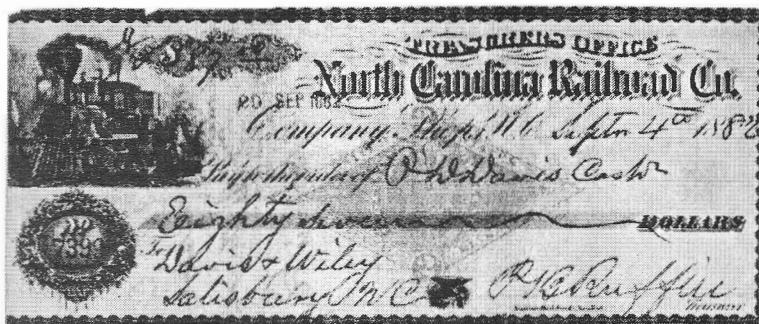 $87
TREASURERS OFFICE
North Carolina Railroad Co.
PD SEP 1882
Company Shops, N.C. Septr 4th 1882
Pay to the order of O D Davis Cashr
Eighty seven DOLLARS
To
Davis & Wiley
Salisbury N C
P B Ruffin